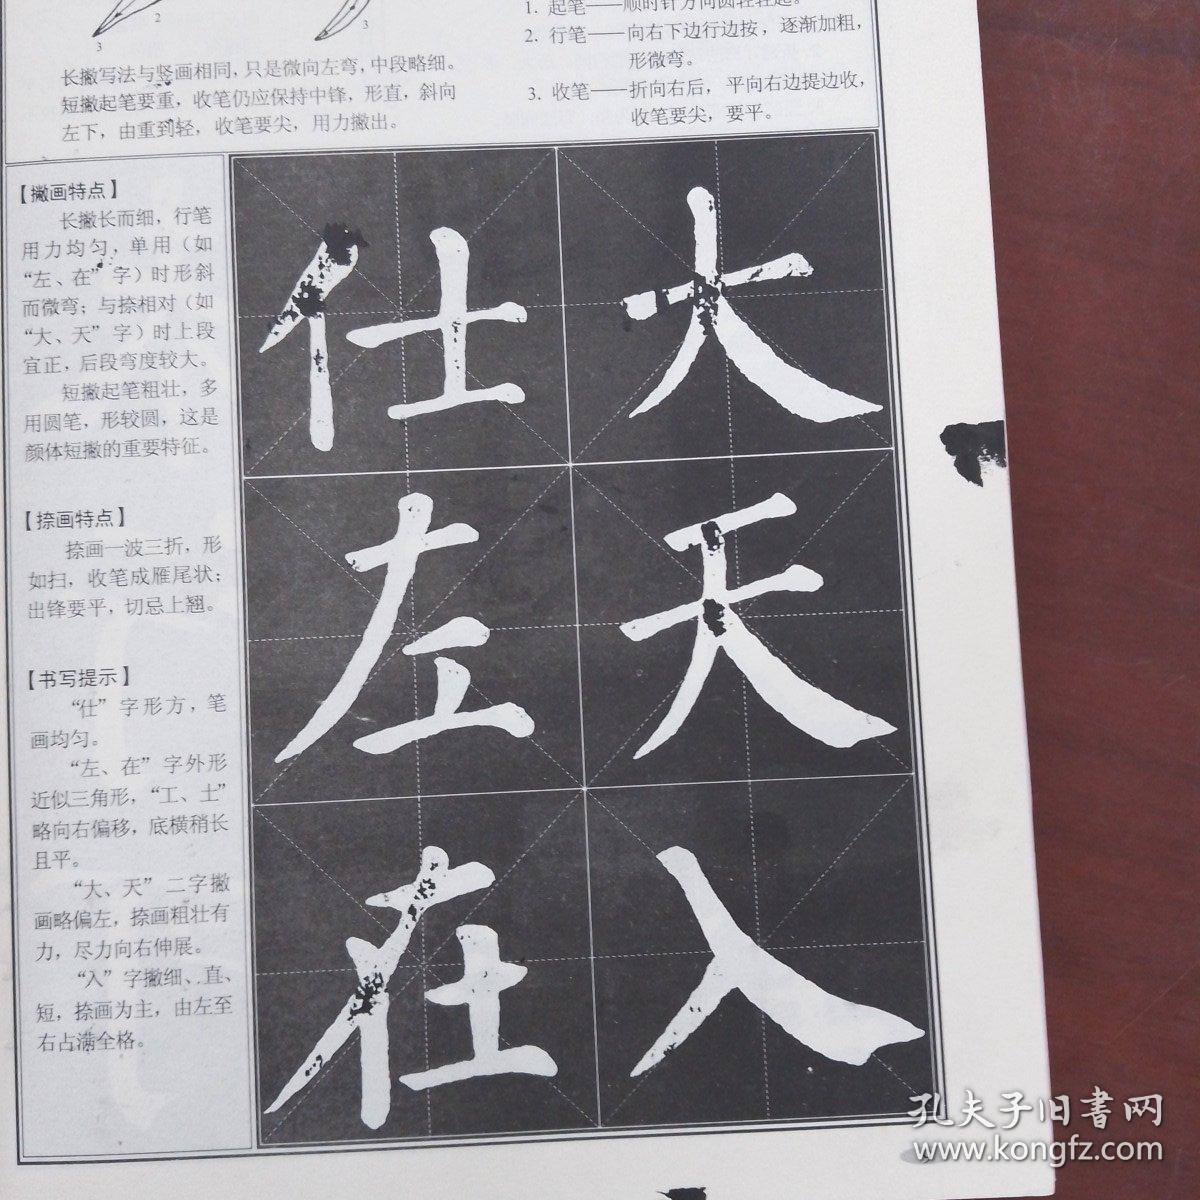 1. 起笔——顺时针方向圆转轻起。
2. 行笔——向右下边行边按，逐渐加粗，
形微弯。
3. 收笔——折向右后，平向右边提边收，
收笔要尖，要平。
2
3
3
长撇写法与竖画相同，只是微向左弯，中段略细。
短撇起笔要重，收笔仍应保持中锋，形直，斜向
左下，由重到轻，收笔要尖，用力撇出。
【撇画特点】
长撇长而细，行笔
用力均匀，单用（如
“左、在”字）时形斜
而微弯；与捺相对（如
“大、天”字）时上段
宜正，后段弯度较大。
短撇起笔粗壮，多
用圆笔，形较圆，这是
颜体短撇的重要特征。
【捺画特点】
捺画一波三折，形
如扫，收笔成雁尾状；
出锋要平，切忌上翘。
【书写提示】
“仕”字形方，笔
画均匀。
“左、在”字外形
近似三角形，“工、土”
略向右偏移，底横稍长
且平。
“大、天”二字撇
画略偏左，捺画粗壮有
力，尽力向右伸展。
“入”字撇细、直、
短，捺画为主，由左至
右占满全格。
大
天
入
仕
左
在
孔夫子旧書网
www.kongfz.com